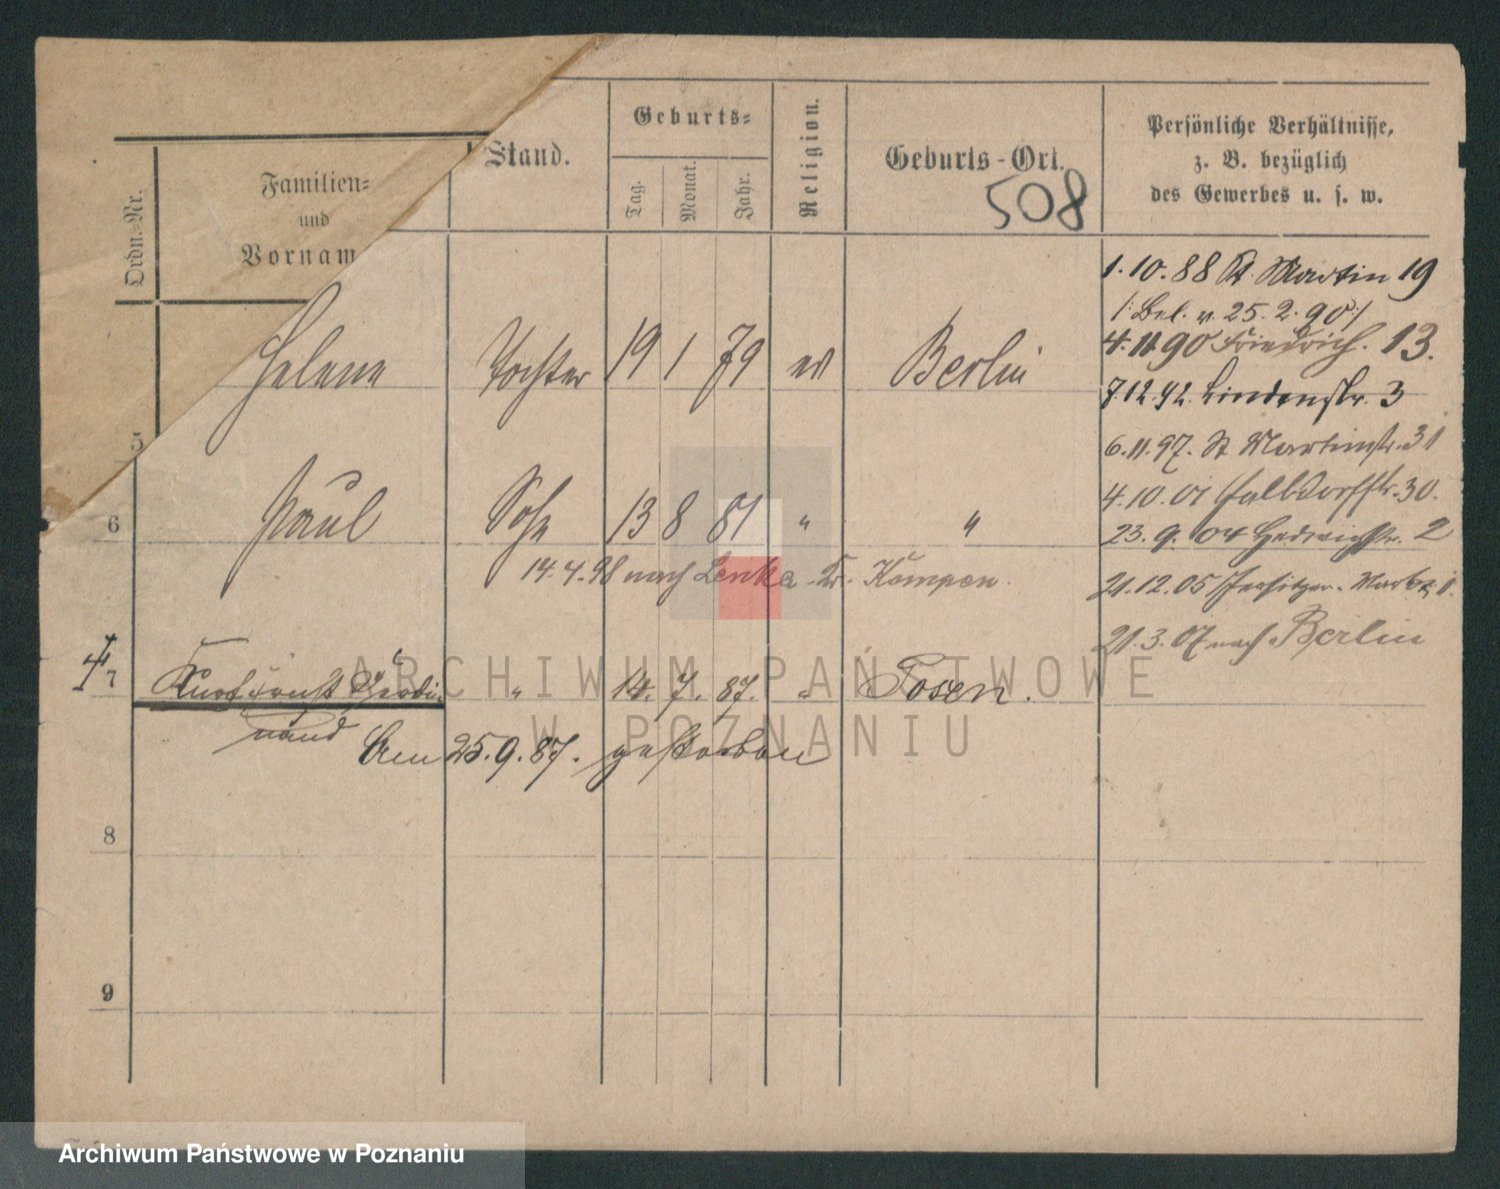 Ordn.-Nr.
Familien=
und
Vornam
Stand.
Geburts=
Tag.
Monat.
Jahr.
Religion.
Geburts-Ort.
508
Persönliche Verhältnisse,
z. B. bezüglich
des Gewerbes u. s. w.
1.10.88 St. Martin 19
/: Bel. v. 25.2.90 :/
4.11.90 Friedrich. 13.
7.12.92. Lindenstr. 3
6.11.97. St Martinstr. 31
4.10.01 Halbdorfstr. 30.
23.9.04 Hedwigstr. 2
21.12.05 Jersitzer-Markt
21.3.07 nach Berlin
5
Helene Tochter 19 1 79 ev Berlin
6 Paul Sohn 13 8 81 " "
14.4.98 nach Lenka Kr. Kempen
7 Kurt Ernst Ferdi- " 14. 7. 87. " Posen.
nand
Am 25.9.87. gestorben
8
9
ARCHIWUM PAŃSTWOWE
W POZNANIU
Archiwum Państwowe w Poznaniu